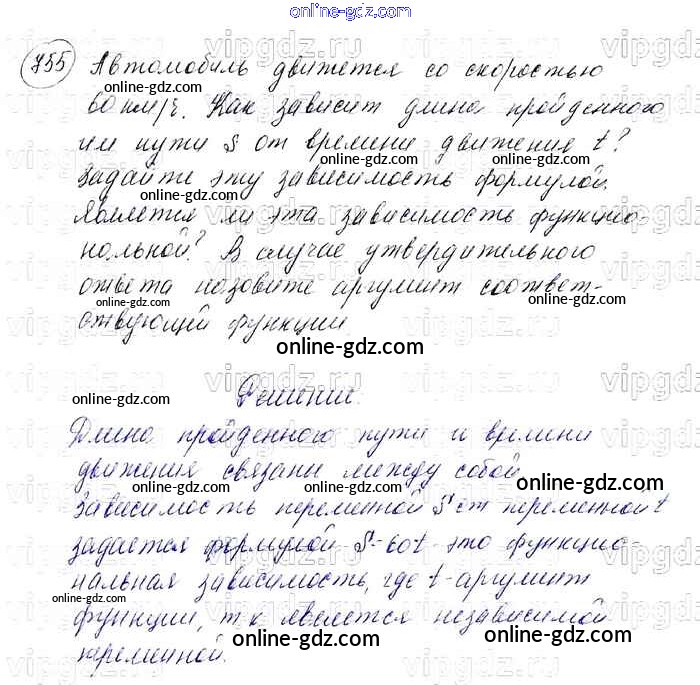 online-gdz.com
755 Автомобиль движется со скоростью
60 км/ч. Как зависит длина пройденного
им пути S от времени движения t?
Задайте эту зависимость формулой.
Является ли эта зависимость функцио-
нальной? В случае утвердительного
ответа назовите аргумент соответ-
ствующей функции
online-gdz.com
Решение.
Длина пройденного пути и времени
движения связаны между собой
Зависимость переменной S от переменной t
задается формулой S=60t - это функцио-
нальная зависимость, где t - аргумент
функции, т.к является независимой
переменной.
online-gdz.com